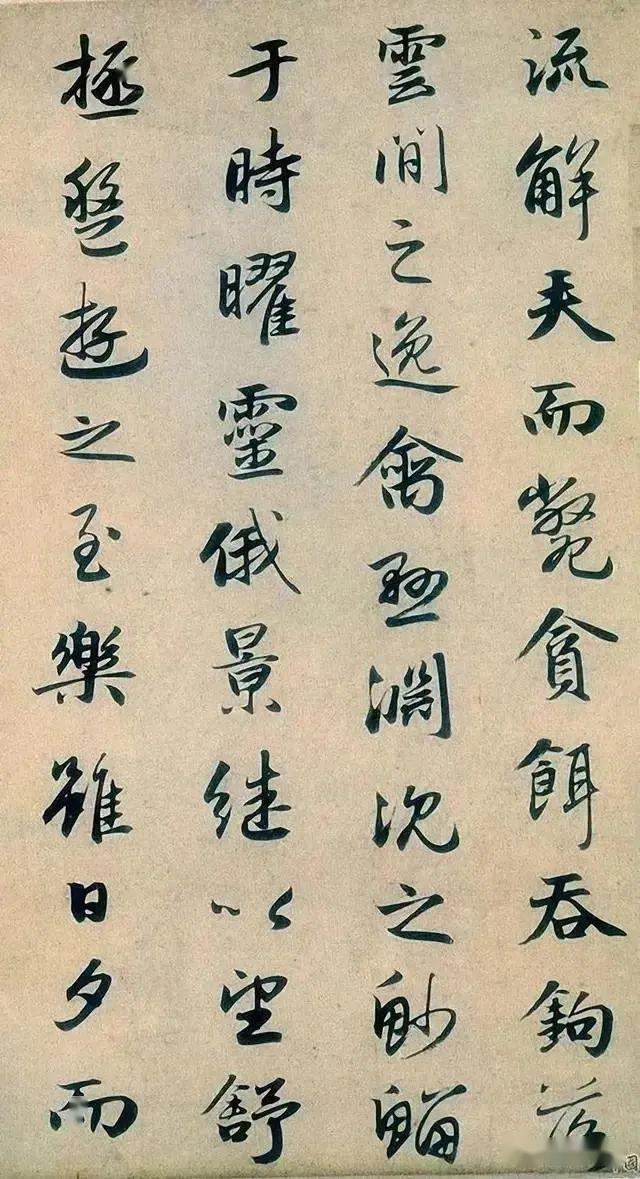 流觧矢而斃貪餌吞鉤落
雲間之逸禽懸淵沉之魦鰡
于時曜靈俄景継以望舒
極盤遊之至樂雖日夕而